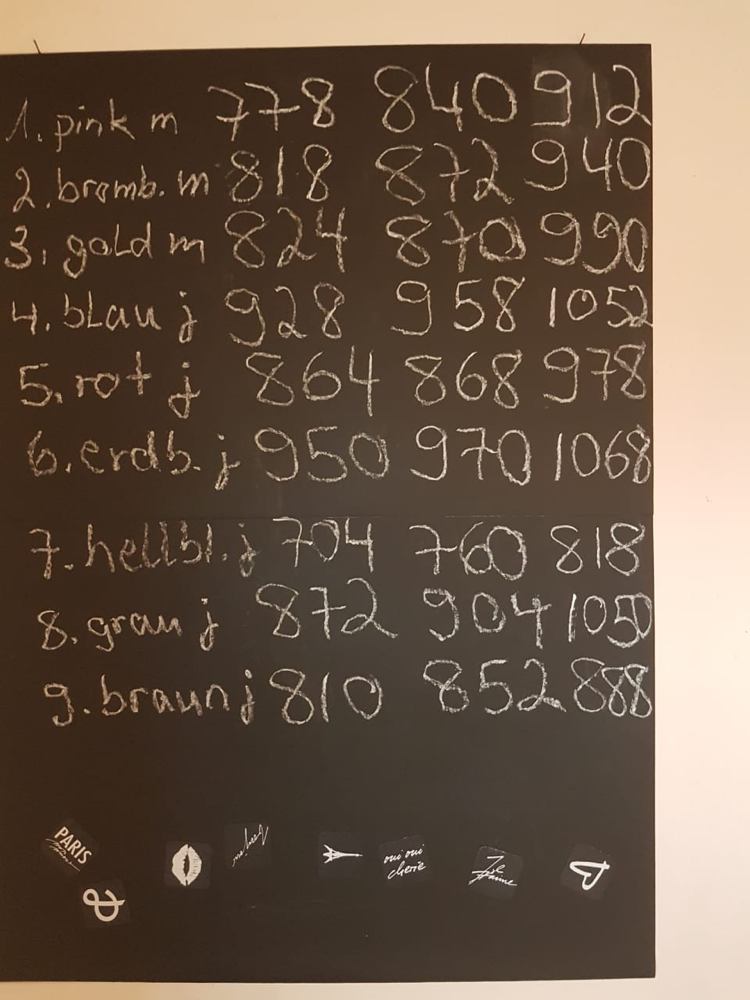 1. pink m 778 840 912
2. bromb. m 818 872 940
3. gold m 824 870 990
4. blau j 928 958 1052
5. rot j 864 868 978
6. erdb. j 950 970 1068
7. hellbl. j 704 760 818
8. grau j 872 904 1050
9. braun j 810 852 888
PARIS
oui oui
cherie
Je
t'aime
&